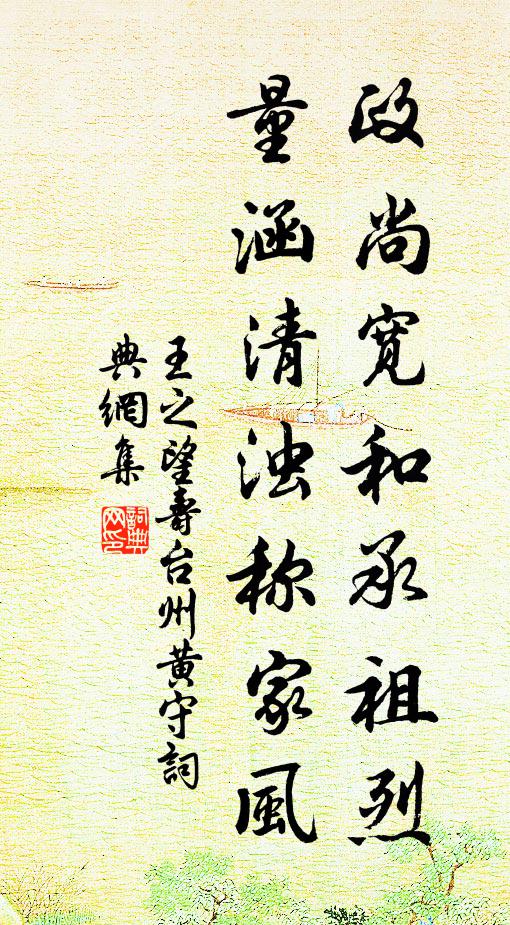 政尚宽和承祖烈
量涵清浊称家風
王之望壽台州黄守詞
典網集
詞典网印